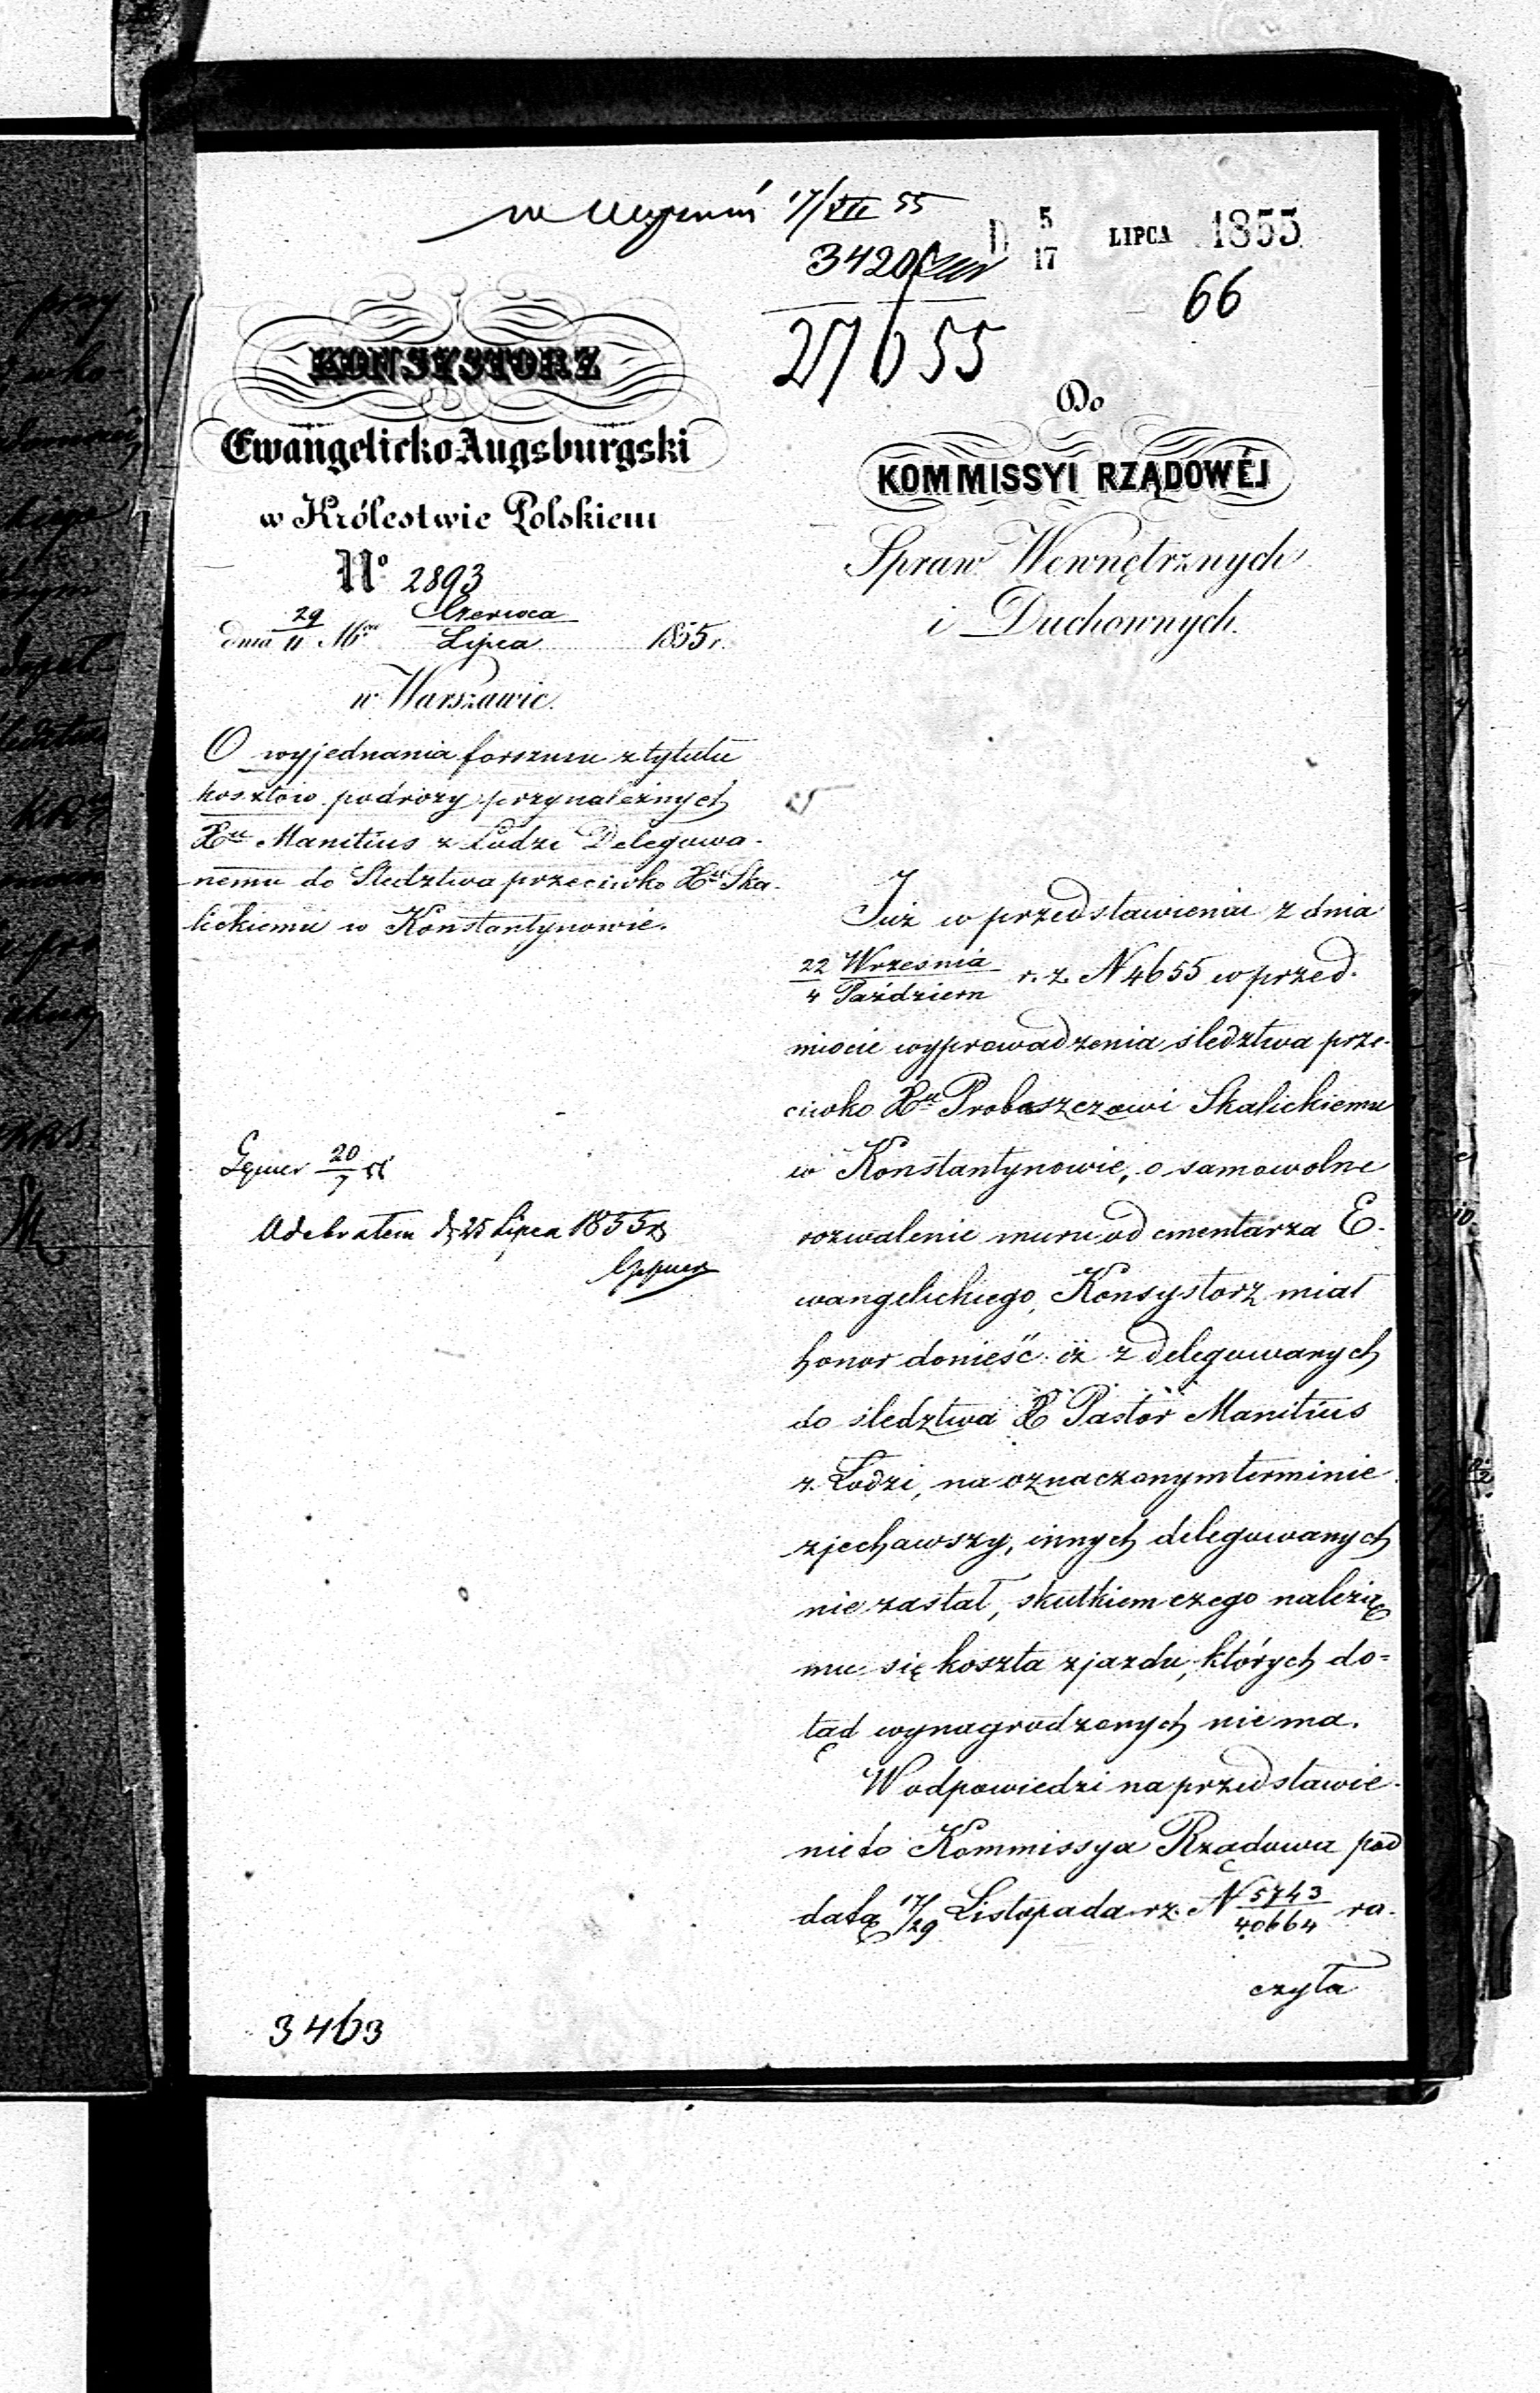 17/VII 55
D 5/17 LIPCA 1855
3420
66
27655
KONSYSTORZ
Ewangelicko-Augsburgski
w Królestwie Polskiem
No 2893
dnia 29/11 Mca Czerwca/Lipca 1855 r.
w Warszawie.
O wyjednania forszusu z tytułu
kosztów podróży przynależnych
Xu Manitius z Łodzi Delegowa-
nemu do Sledztwa przeciwko Xu Ska-
lickiemu w Konstantynowie.
20/7 55
Odebrałem d 25 Lipca 1855 r
3463
Do
KOMMISSYI RZĄDOWÉJ
Spraw Wewnętrznych
i Duchownych.
Już w przedstawieniu z dnia
22 Września/4 Październ r. z. N 4655 w przed-
miocie wyprowadzenia śledztwa prze-
ciwko Xu Proboszczowi Skalickiemu
w Konstantynowie, o samowolne
rozwalenie muru od cmentarza E-
wangelickiego, Konsystorz miał
honor donieść iż z delegowanych
do śledztwa X Pastor Manitius
z Łodzi, na oznaczonym terminie
zjechawszy, innych delegowanych
nie zastał, skutkiem czego należą
mu się koszta zjazdu, których do=
tąd wynagrodzonych nie ma.
W odpowiedzi na przedstawie-
nie to Kommissya Rządowa pod
datą 17/29 Listopada r. z. N 5743/40664 ra-
czyła